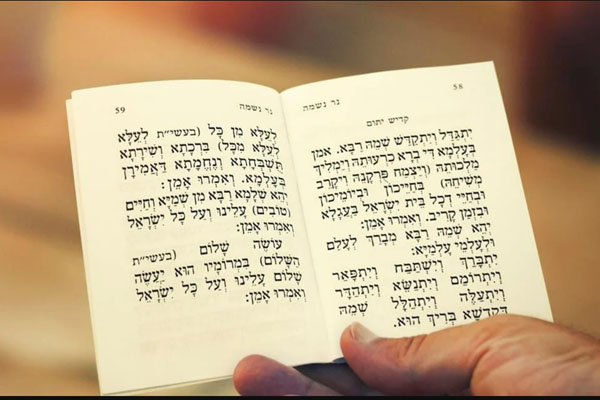 58
נר נשמה
קדיש יתום
יִתְגַּדַּל וְיִתְקַדַּשׁ שְׁמֵהּ רַבָּא. אמן
בְּעָלְמָא דִּי בְרָא כִרְעוּתֵהּ וְיַמְלִיךְ
מַלְכוּתֵהּ (וְיַצְמַח פֻּרְקָנֵהּ וִיקָרֵב
מְשִׁיחֵהּ) בְּחַיֵּיכוֹן וּבְיוֹמֵיכוֹן
וּבְחַיֵּי דְכָל בֵּית יִשְׂרָאֵל בַּעֲגָלָא
וּבִזְמַן קָרִיב. וְאִמְרוּ אָמֵן:
יְהֵא שְׁמֵהּ רַבָּא מְבָרַךְ לְעָלַם
וּלְעָלְמֵי עָלְמַיָּא:
יִתְבָּרַךְ וְיִשְׁתַּבַּח וְיִתְפָּאַר
וְיִתְרוֹמַם וְיִתְנַשֵּׂא וְיִתְהַדָּר
וְיִתְעַלֶּה וְיִתְהַלָּל שְׁמֵהּ
דְּקֻדְשָׁא בְּרִיךְ הוּא.
59
נר נשמה
לְעֵלָּא מִן כָּל (בעשי״ת לְעֵלָּא
לְעֵלָּא מִכָּל) בִּרְכָתָא וְשִׁירָתָא
תֻּשְׁבְּחָתָא וְנֶחֱמָתָא דַּאֲמִירָן
בְּעָלְמָא. וְאִמְרוּ אָמֵן:
יְהֵא שְׁלָמָא רַבָּא מִן שְׁמַיָּא וְחַיִּים
(טוֹבִים) עָלֵינוּ וְעַל כָּל יִשְׂרָאֵל
וְאִמְרוּ אָמֵן:
עוֹשֶׂה שָׁלוֹם (בעשי״ת
הַשָּׁלוֹם) בִּמְרוֹמָיו הוּא יַעֲשֶׂה
שָׁלוֹם עָלֵינוּ וְעַל כָּל יִשְׂרָאֵל
וְאִמְרוּ אָמֵן: